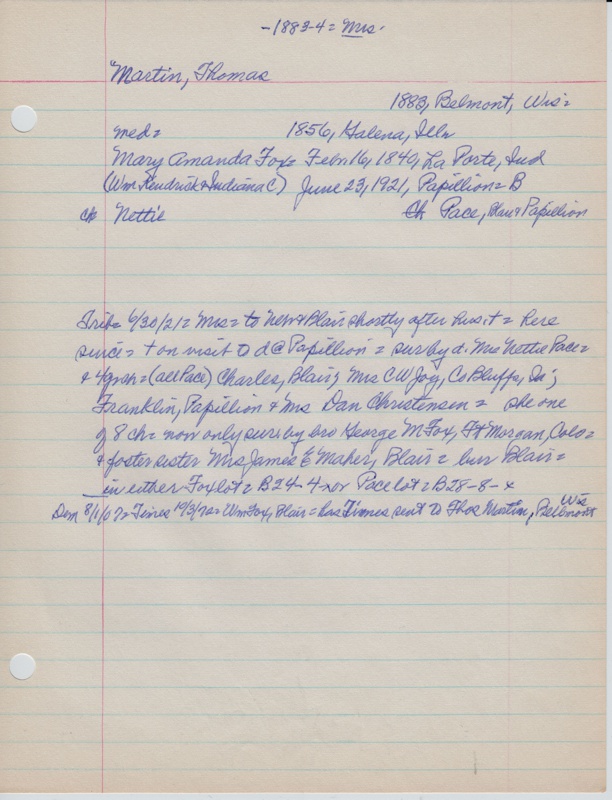 -1883-4= Mrs-
Martin, Thomas
1883, Belmont, Wis=
med= 1856, Galena, Ills
Mary Amanda Fox= Febr 16, 1840, La Porte, Ind
(Wm Kendrick & Indiana C) June 23, 1921, Papillion= B
ch Nettie Ch Pace, Blair & Papillion
Trib= 6/30/21= Mrs= to Nebr & Blair shortly after hus †= here
since= † on visit to d @ Papillion= sur by d. Mrs Nettie Pace=
& 4 gr ch= (all Pace) Charles, Blair; Mrs C W Joy, Co Bluffs, Ia;
Franklin, Papillion & Mrs Dan Christensen= she one
of 8 ch= now only surv by bro George M Fox, Ft Morgan, Colo=
& foster sister Mrs James E Maher, Blair= bur Blair=
in either Fox lot= B24-4-x or Pace lot= B28-8-x
Dem 8/1/07= Times = Wm Fox, Blair= has Times sent to Thos Martin, Belmont
Wis